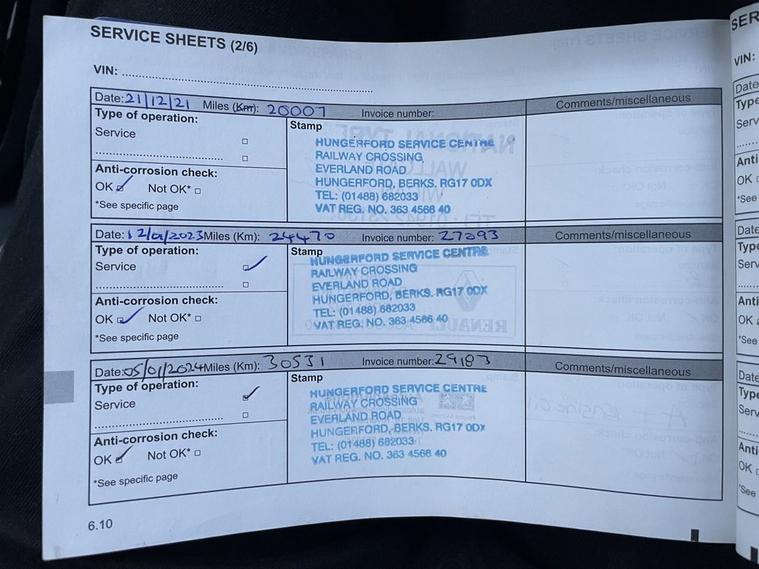 SERVICE SHEETS (2/6)
VIN:
Date: 21/12/21 Miles (Km): 20007 Invoice number: Comments/miscellaneous
Type of operation:
Service
Anti-corrosion check:
OK Not OK*
*See specific page
Stamp
HUNGERFORD SERVICE CENTRE
RAILWAY CROSSING
EVERLAND ROAD
HUNGERFORD, BERKS. RG17 0DX
TEL: (01488) 682033
VAT REG. NO. 363 4566 40
Date: 12/01/2023 Miles (Km): 24470 Invoice number: 27093 Comments/miscellaneous
Type of operation:
Service
Anti-corrosion check:
OK Not OK*
*See specific page
Stamp
HUNGERFORD SERVICE CENTRE
RAILWAY CROSSING
EVERLAND ROAD
HUNGERFORD, BERKS. RG17 0DX
TEL: (01488) 682033
VAT REG. NO. 363 4566 40
Date: 05/01/2024 Miles (Km): 30531 Invoice number: 29183 Comments/miscellaneous
Type of operation:
Service
Anti-corrosion check:
OK Not OK*
*See specific page
Stamp
HUNGERFORD SERVICE CENTRE
RAILWAY CROSSING
EVERLAND ROAD
HUNGERFORD, BERKS. RG17 0DX
TEL: (01488) 682033
VAT REG. NO. 363 4566 40
6.10
VIN:
Date
Type
Anti
OK
*See
Date
Type
Anti
OK
*See
Date
Type
Anti
OK
*See